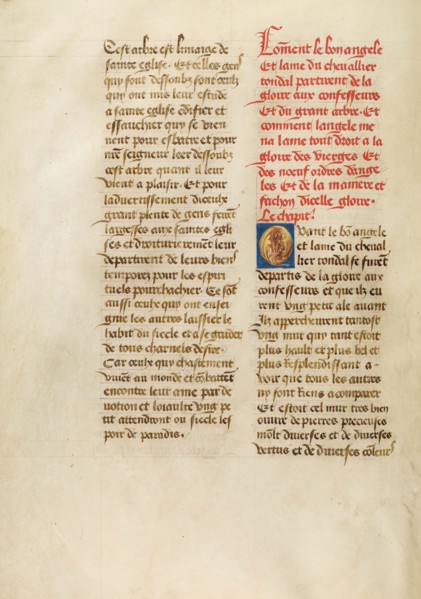 Cest arbre est limaige de
sainte eglise. Et celles gens
quy sont dessoubz sont ceulz
quy ont mis leur estude
a sainte eglise edifier et
essauchier quy se vien
nent pour esbatre et pour
nrẽ seigneur loer dessoubz
cest arbre quant il leur
vient a plaisir. Et pour
laduertissement diceulx
grant plente de gens feirẽt
largesses aux saintes egli
ses et droitture reniẽt leur
departirent de leurs biens
temporez pour les espiri
tuels pourchachier. Ce sõt
aussi ceulx quy ont ensei
gnie les autres laissier le
habit du siecle et a se garder
de tous charnels desirs.
Car ceulx quy chastement
viuẽt au monde et cõbattẽt
encontre leur ame par de
uotion et loiaulte vng pe
tit attendront ou siecle les
poir de paradis.
Comẽnt le bon angele
Et lame du cheuallier
tondal partirent de la
gloire aux confesseurs
Et du grant arbre. Et
comment langele me
na lame tout droit a la
gloire des vierges Et
des noeuf ordres dange
les Et de la maniere et
fachon dicelle gloire.
Le chapit̃.
Quant le bõ angele
et lame du cheual
lier tondal se furẽt
departis de la gloire aux
confesseurs et que ilz eu
rent vng petit ale auant
Ilz apperchurent tantost
vng mur quy tant estoit
plus hault et plus bel et
plus resplendissant a
voir que tous les autres
ny font riens a comparer
Et estoit cel mur tres bien
ouure de pierres precieuses
mõlt diuerses et de diuerses
vertus et de diuerses couleurs